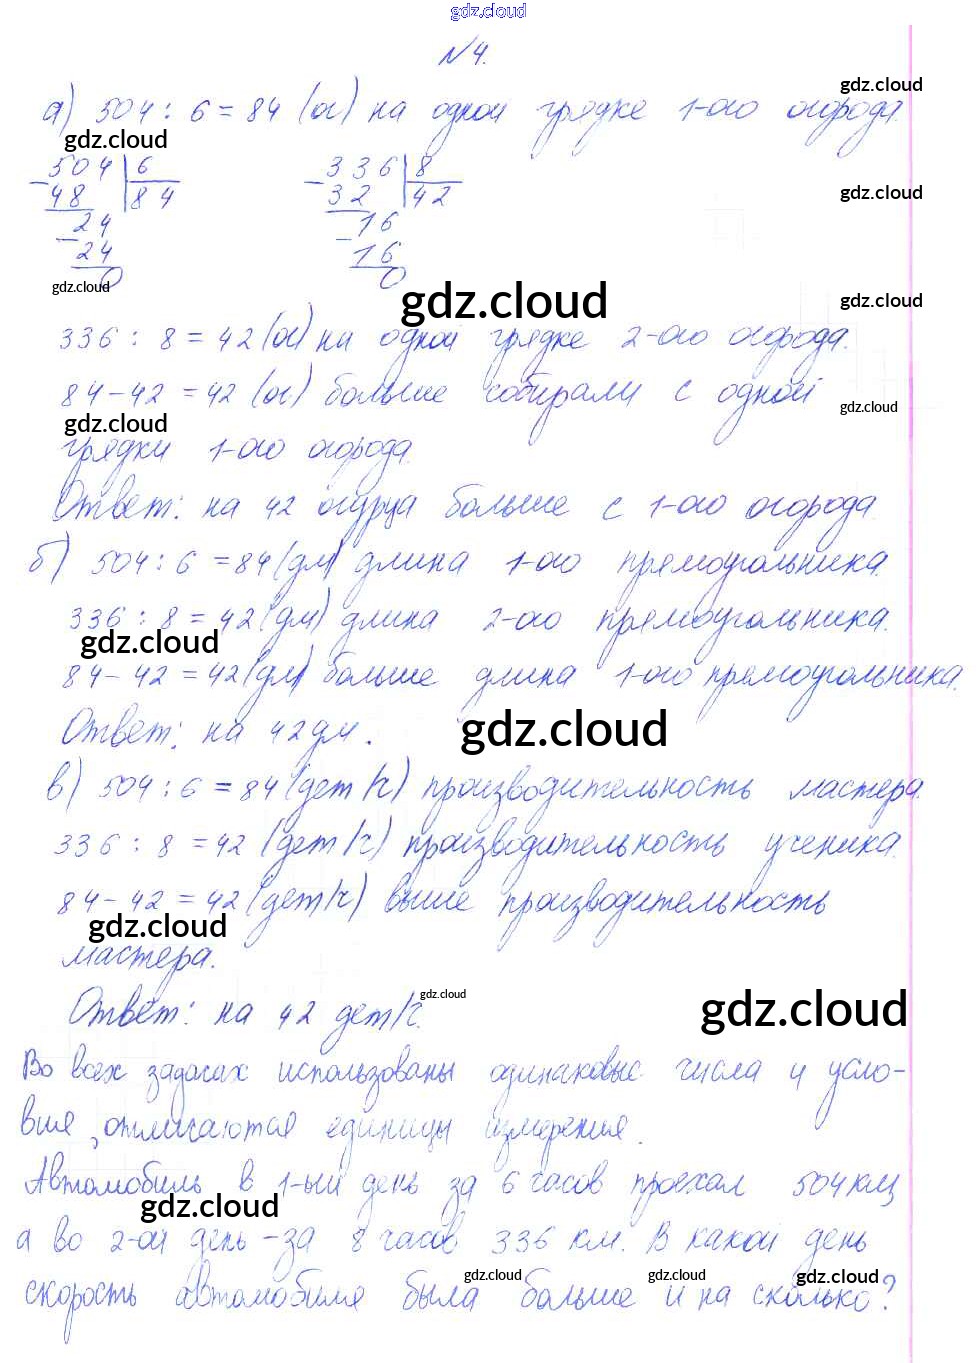 gdz.cloud
№4.
а) 504 : 6 = 84 (ог) на одной грядке 1-ого огорода.
gdz.cloud
gdz.cloud
504 | 6
336 | 8
- 48 | 84
- 32 | 42
gdz.cloud
24
16
- 24
- 16
0
0
gdz.cloud
gdz.cloud
gdz.cloud
336 : 8 = 42 (ог) на одной грядке 2-ого огорода.
84 - 42 = 42 (ог) больше собирали с одной
gdz.cloud
gdz.cloud
грядки 1-ого огорода.
Ответ: на 42 огурца больше с 1-ого огорода.
б) 504 : 6 = 84 (дм) длина 1-ого прямоугольника.
336 : 8 = 42 (дм) длина 2-ого прямоугольника.
gdz.cloud
84 - 42 = 42 (дм) больше длина 1-ого прямоугольника.
Ответ: на 42 дм.
gdz.cloud
в) 504 : 6 = 84 (дет/ч) производительность мастера.
336 : 8 = 42 (дет/ч) производительность ученика.
84 - 42 = 42 (дет/ч) выше производительность
gdz.cloud
мастера.
gdz.cloud
Ответ: на 42 дет/ч.
gdz.cloud
Во всех задачах использованы одинаковые числа и усло-
вия, отличаются единицы измерения.
Автомобиль в 1-ый день за 6 часов проехал 504 км,
gdz.cloud
а во 2-ой день - за 8 часов 336 км. В какой день
gdz.cloud
gdz.cloud
gdz.cloud
скорость автомобиля была больше и на сколько?